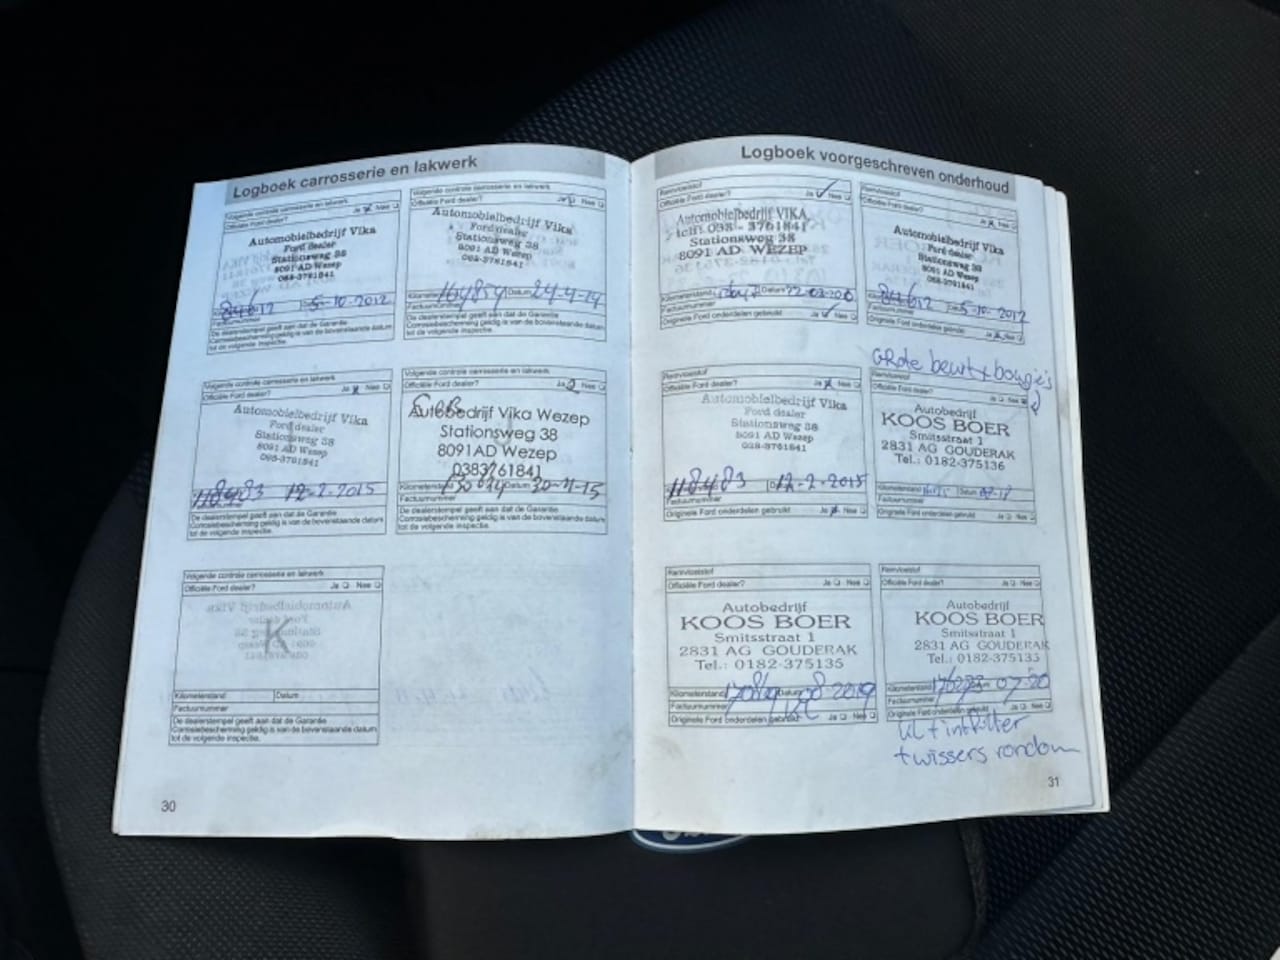 Logboek carrosserie en lakwerk
Volgende controle carrosserie en lakwerk
Officiële Ford dealer? Ja Nee
Automobielbedrijf Vika
Ford dealer
Stationsweg 38
8091 AD Wezep
038-3761841
5-10-2012
Factuurnummer
De dealerstempel geeft aan dat de Garantie
Carrosseriebescherming geldig is van de bovenstaande datum
tot de volgende inspectie.
Volgende controle carrosserie en lakwerk
Officiële Ford dealer? Ja Nee
Automobielbedrijf Vika
Ford dealer
Stationsweg 38
8091 AD Wezep
038-3761841
Datum 24-4-14
Factuurnummer
De dealerstempel geeft aan dat de Garantie
Carrosseriebescherming geldig is van de bovenstaande datum
tot de volgende inspectie.
Volgende controle carrosserie en lakwerk
Officiële Ford dealer? Ja Nee
Automobielbedrijf Vika
Ford dealer
Stationsweg 38
8091 AD Wezep
038-3761841
118483 12-2-2015
Factuurnummer
De dealerstempel geeft aan dat de Garantie
Carrosseriebescherming geldig is van de bovenstaande datum
tot de volgende inspectie.
Volgende controle carrosserie en lakwerk
Officiële Ford dealer? Ja Nee
Autobedrijf Vika Wezep
Stationsweg 38
8091AD Wezep
0383761841
Kilometerstand Datum 30-11-15
Factuurnummer
De dealerstempel geeft aan dat de Garantie
Carrosseriebescherming geldig is van de bovenstaande datum
tot de volgende inspectie.
Volgende controle carrosserie en lakwerk
Officiële Ford dealer? Ja Nee
Kilometerstand Datum
Factuurnummer
De dealerstempel geeft aan dat de Garantie
Carrosseriebescherming geldig is van de bovenstaande datum
tot de volgende inspectie.
30
Logboek voorgeschreven onderhoud
Remvloeistof
Officiële Ford dealer? Ja Nee
Automobielbedrijf VIKA
telf: 038 - 3761841
Stationsweg 38
8091 AD WEZEP
Kilometerstand Datum
Factuurnummer
Originele Ford onderdelen gebruikt Ja Nee
Remvloeistof
Officiële Ford dealer? Ja Nee
Automobielbedrijf Vika
Ford dealer
Stationsweg 38
8091 AD Wezep
038-3761841
5-10-2012
Factuurnummer
Originele Ford onderdelen gebruikt Ja Nee
Grote beurt + bougie's
Remvloeistof
Officiële Ford dealer? Ja Nee
Automobielbedrijf Vika
Ford dealer
Stationsweg 38
8091 AD Wezep
038-3761841
118483 12-2-2015
Factuurnummer
Originele Ford onderdelen gebruikt Ja Nee
Remvloeistof
Officiële Ford dealer? Ja Nee
Autobedrijf
KOOS BOER
Smitsstraat 1
2831 AG GOUDERAK
Tel.: 0182-375136
Kilometerstand Datum
Factuurnummer
Originele Ford onderdelen gebruikt Ja Nee
Remvloeistof
Officiële Ford dealer? Ja Nee
Autobedrijf
KOOS BOER
Smitsstraat 1
2831 AG GOUDERAK
Tel.: 0182-375135
Kilometerstand Datum 08 2019
Factuurnummer
Originele Ford onderdelen gebruikt Ja Nee
Remvloeistof
Officiële Ford dealer? Ja Nee
Autobedrijf
KOOS BOER
Smitsstraat 1
2831 AG GOUDERAK
Tel.: 0182-375135
Kilometerstand 07-20
Factuurnummer
Originele Ford onderdelen gebruikt Ja Nee
+ intFilter
+ wissers rondom
31